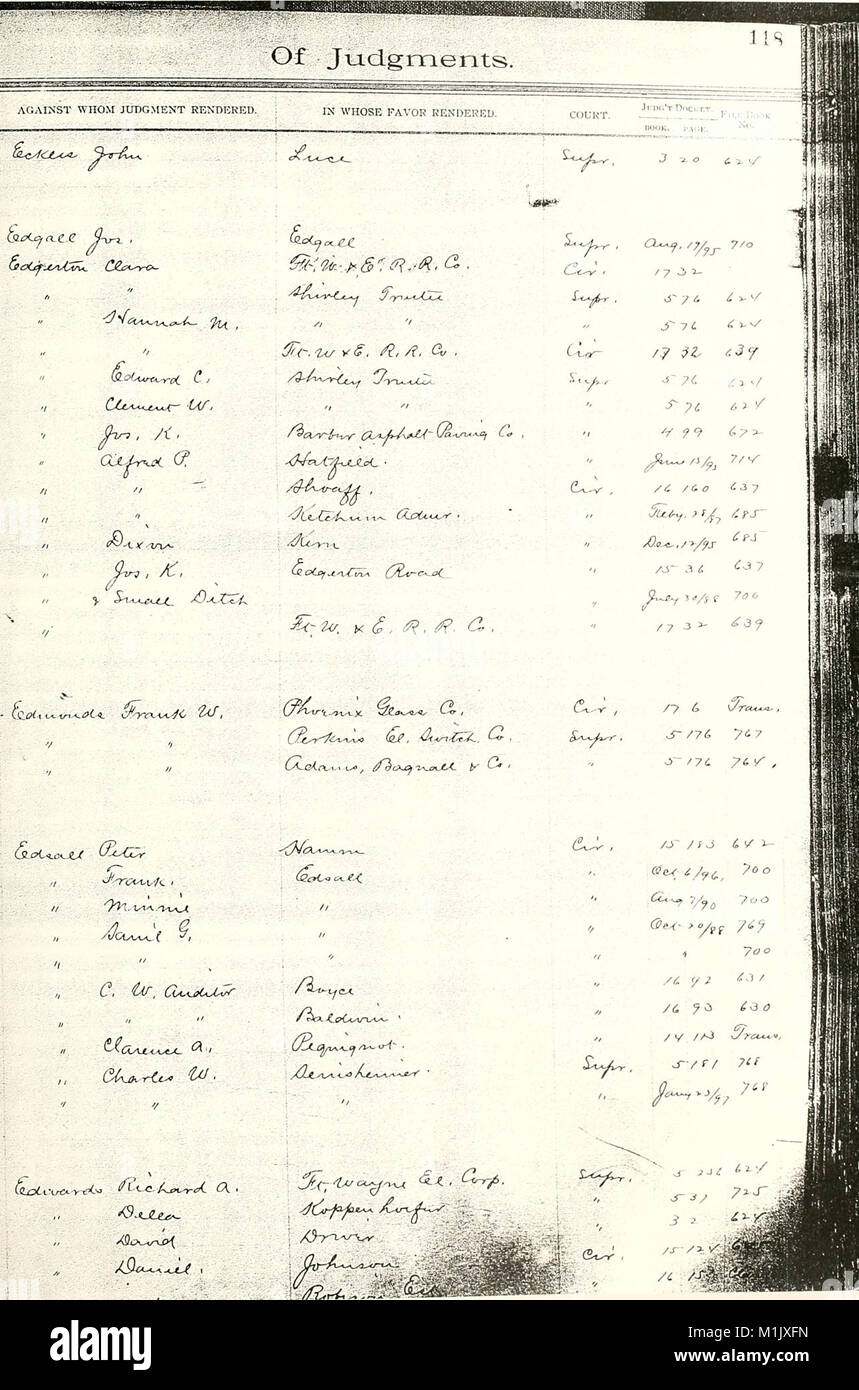 118
Of Judgments.
AGAINST WHOM JUDGMENT RENDERED. IN WHOSE FAVOR RENDERED. COURT. JUDG'T DOCKET BOOK. PAGE. FILE BOOK No.
Eckels John Luce Supr. 3 20 624
Edgall Jos. Edgall Supr. Aug. 17/95 710
Edgerton Clara Ft. W. & E. R. R. Co. Cir. 17 32
" " Shirley Trustee Supr. 5 76 624
" Hannah M. " " " 5 76 624
" " Ft. W & E. R. R. Co. Cir 17 32 639
" Edward C. Shirley Trustee Supr 5 76 624
" Clement W. " " " 5 76 624
" Jos. K. Barbur Asphalt Paving Co. " 4 99 672
" Alfred P. Hatfield. " June 15/93 714
" " Shoaff. Cir. 16 160 637
" " Ketchum Admr. " Feby. 28/87 685
" Dixon Kern " Dec. 12/95 685
" Jos. K. Edgerton Road " 15 36 637
" & Small Ditch " July 30/88 700
" Ft. W. & E. R. R. Co. " 17 32 639
Edmonds Frank W. Phoenix Glass Co. Cir. 17 6 Trans.
" " Perkins El. Switch Co. Supr. 5 176 767
" " Adams, Bagnall & Co. " 5 176 764.
Edsall Peter Hamm Cir. 15 183 642
" Frank. Edsall " Oct. 6/96, 700
" Minnie " " Aug 7/90 700
" Saml G. " " Oct 20/88 769
" " " " " 700
" C. W. Auditor Boyce " 16 92 631
" " " Baldwin. " 16 93 630
" Clarence A. Pequignot. " 14 113 Trans.
" Charles W. Supr. 5 181 768
" " " " Jany 23/97 768
Edwards Richard A. Ft. Wayne El. Corp. Supr. 5 236 624
" Della Koppenhoefur " 5 31 725
" David Driver " 3 2 624
" Daniel. Johnson Cir. 15 124
" 16
alamy
Image ID: M1JXFN
www.alamy.com